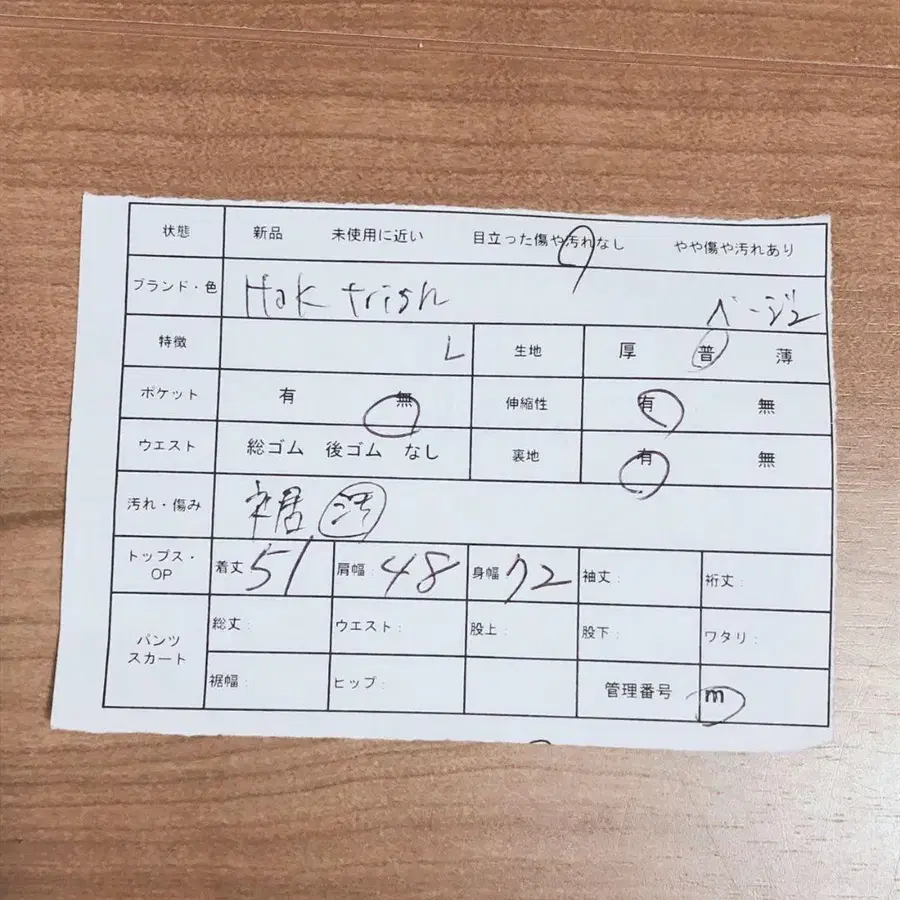 状態 新品 未使用に近い 目立った傷や汚れなし やや傷や汚れあり
ブランド・色 Hak trish ベージュ
特徴 L 生地 厚 普 薄
ポケット 有 無 伸縮性 有 無
ウエスト 総ゴム 後ゴム なし 裏地 有 無
汚れ・傷み 裾 汚
トップス・OP 着丈 51 肩幅: 48 身幅: 72 袖丈: 裄丈:
パンツ スカート 総丈: ウエスト: 股上: 股下: ワタリ:
裾幅: ヒップ: 管理番号 m